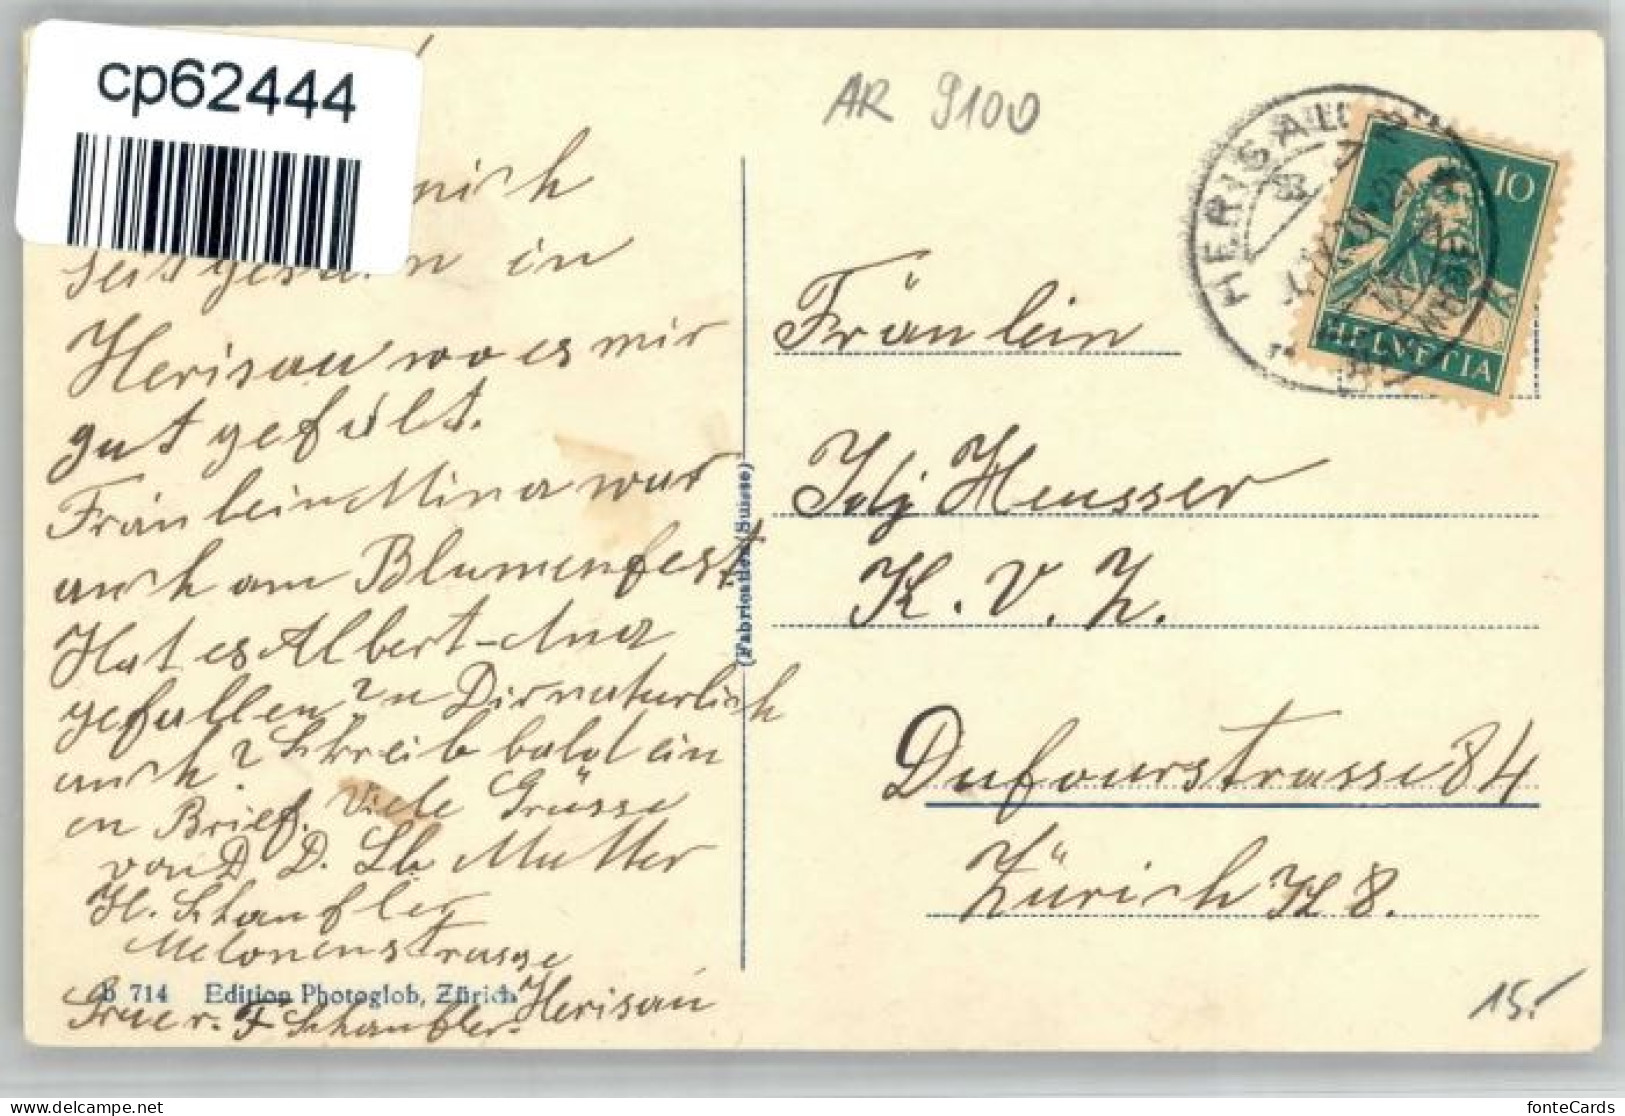 cp62444
AR 9100
HERISAU
HELVETIA
10
in
Herisau wo es mir
gut gefält.
Fräulein Mina war
auch am Blumenfest
Hat es Albert-Anna
gefallen? n Dir naturlich
auch? Schreib bald ein
en Brief. Viele Grüsse
von D. D. Lb Mutter
H. Schaufler
Melonenstrasse
Herisau
b 714 Edition Photoglob, Zürich
F Schaufler.
(Fabrication Suisse)
Fräulein
Idj Heusser
K. V. Z.
Dufourstrasse 84
Zürich 8.
15.-
fonteCards